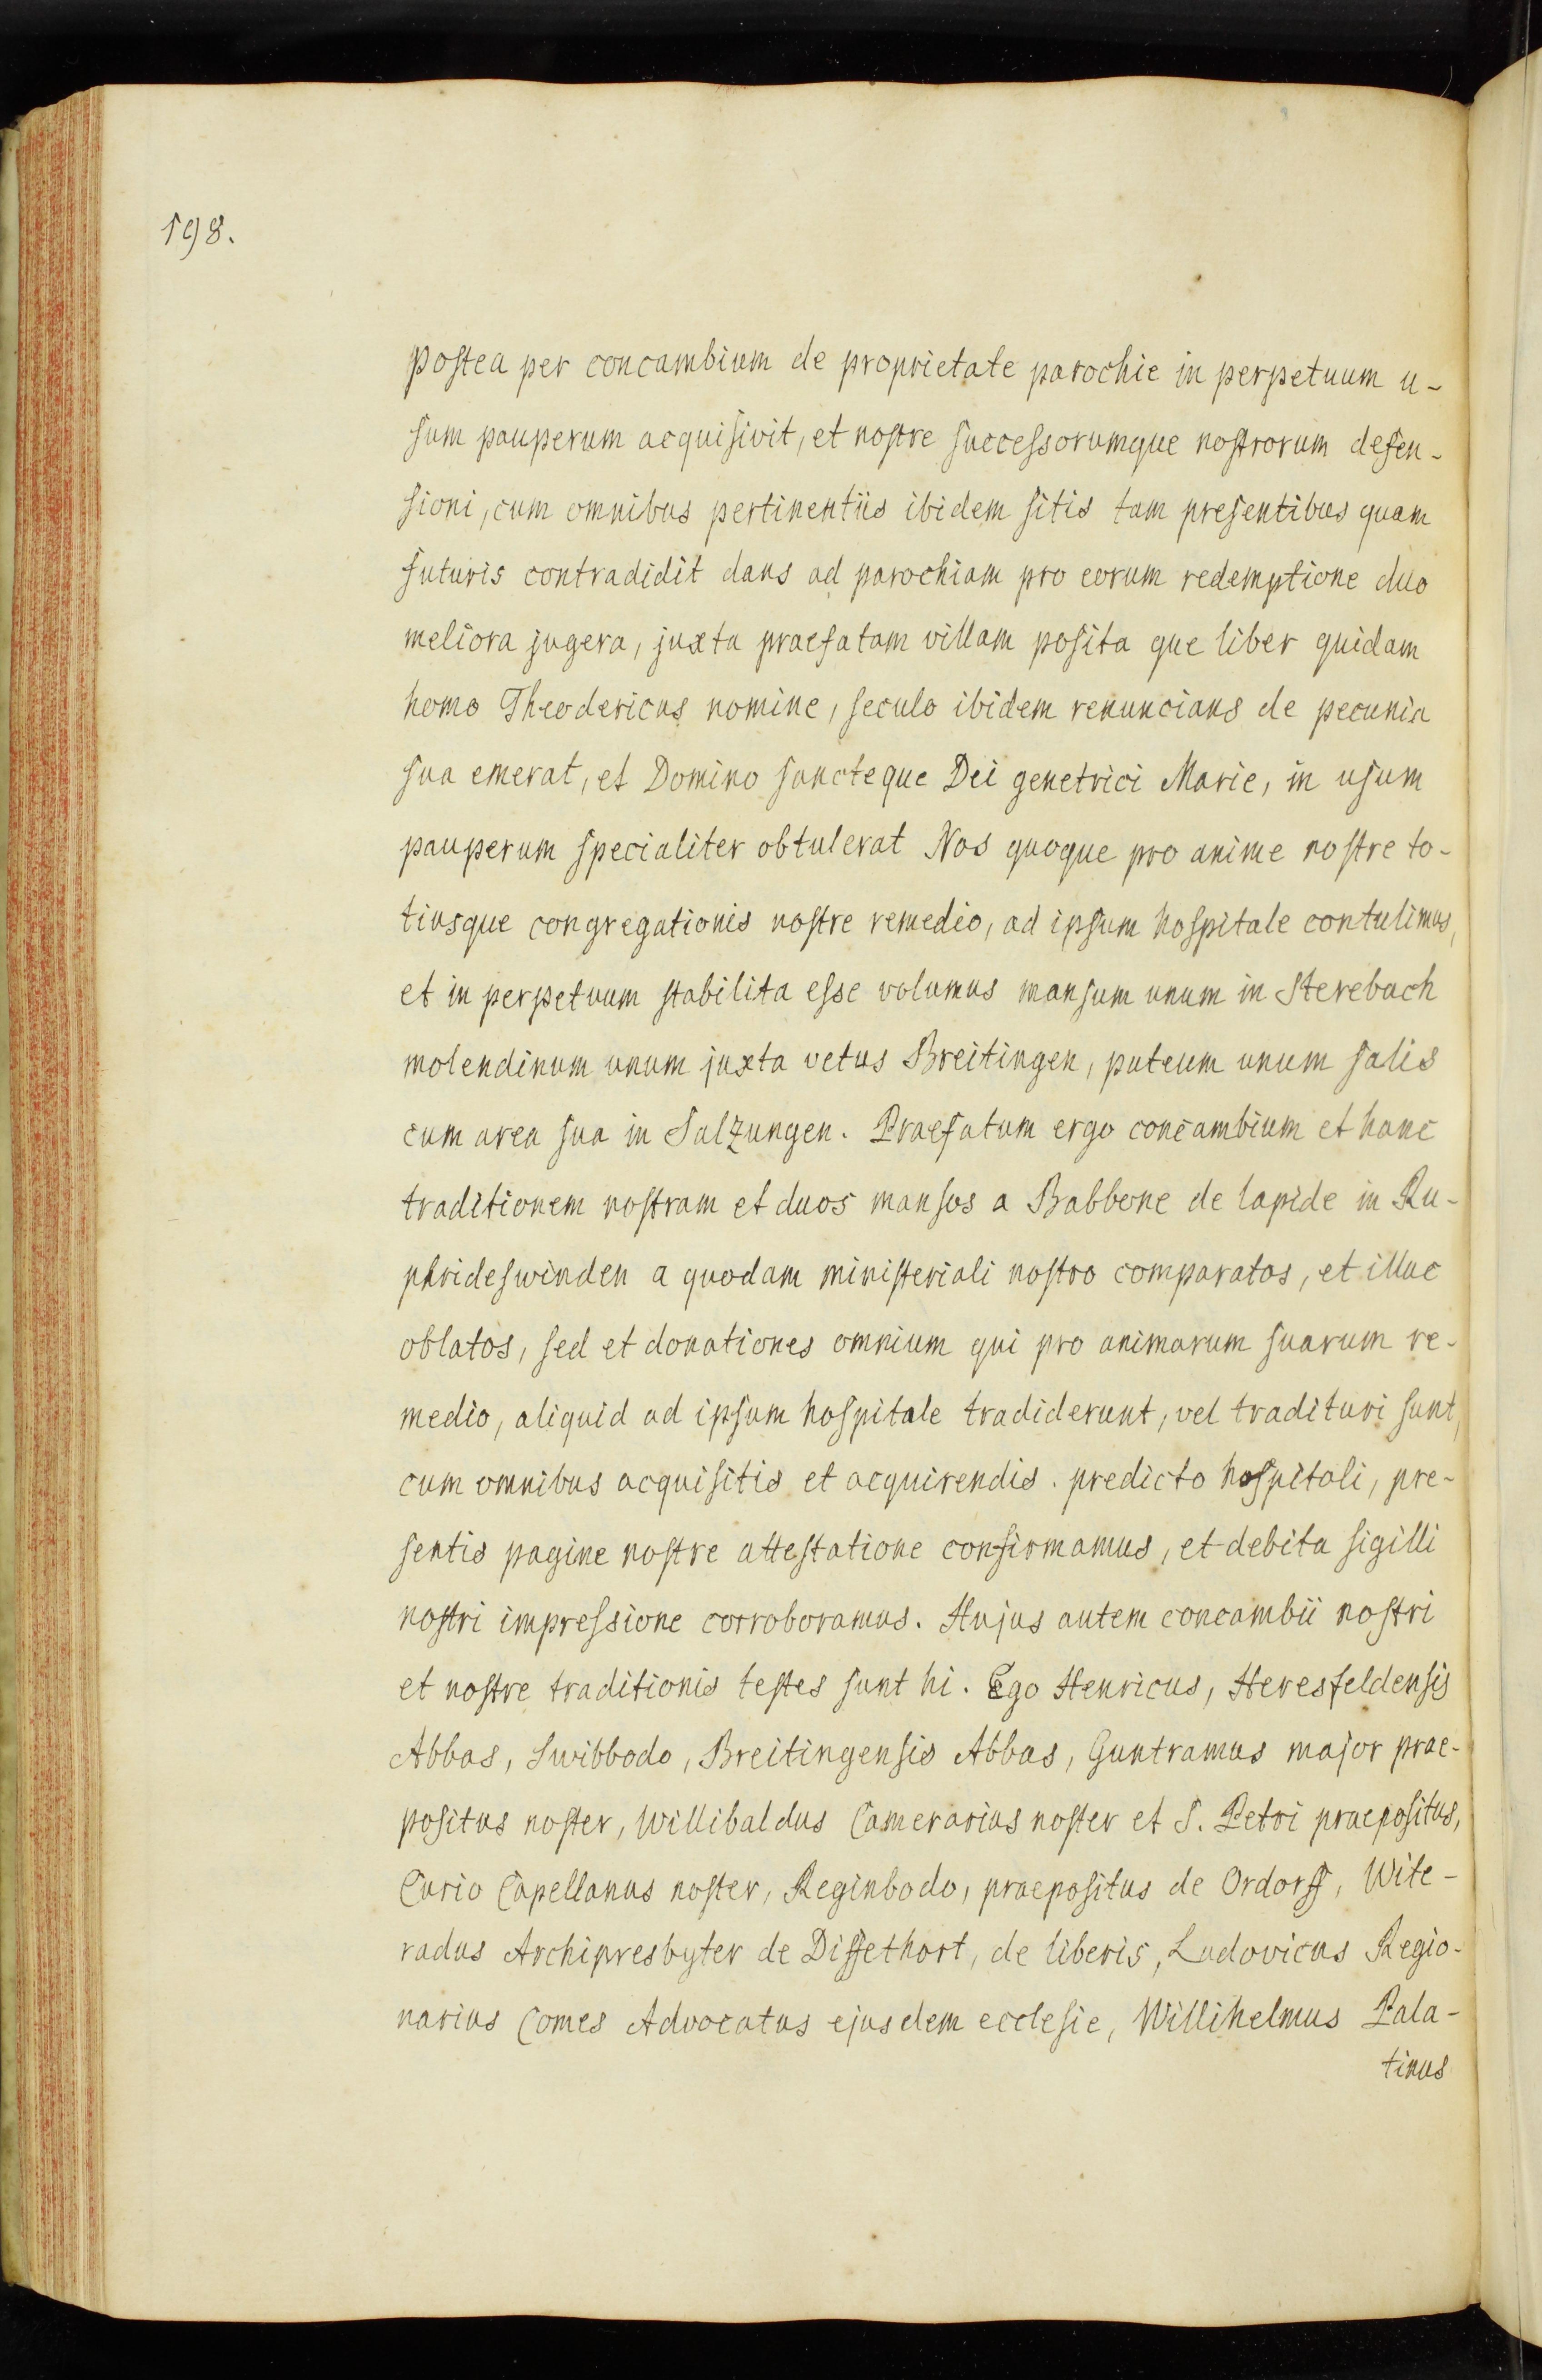 198.
postea per concambium de proprietate parochie in perpetuum u-
sum pauperum acquisivit, et nostre successorumque nostrorum defen-
sioni, cum omnibus pertinentiis ibidem sitis tam presentibus quam
futuris contradidit dans ad parochiam pro eorum redemptione duo
meliora jugera, juxta praefatam villam posita que liber quidam
homo Theodericus nomine, seculo ibidem renuncians de pecunia
sua emerat, et Domino sancteque Dei genetrici Marie, in usum
pauperum specialiter obtulerat Nos quoque pro anime nostre to-
tiusque congregationis nostre remedio, ad ipsum hospitale contulimus,
et in perpetuum stabilita esse volumus mansum unum in Sterebach
molendinum unum juxta vetus Breitingen, puteum unum salis
cum area sua in Salzungen. Praefatum ergo concambium et hanc
traditionem nostram et duos mansos a Babbone de lapide in Ru-
phrideswinden a quodam ministeriali nostro comparatos, et illuc
oblatos, sed et donationes omnium qui pro animarum suarum re-
medio, aliquid ad ipsum hospitale tradiderunt, vel tradituri sunt,
cum omnibus acquisitis et acquirendis. predicto hospitali, pre-
sentis pagine nostre attestatione confirmamus, et debita sigilli
nostri impressione corroboramus. Hujus autem concambii nostri
et nostre traditionis testes sunt hi. Ego Henricus, Heresfeldensis
Abbas, Swibbodo, Breitingensis Abbas, Guntramus major prae-
positus noster, Willibaldus Camerarius noster et S. Petri praepositus,
Curio Capellanus noster, Reginbodo, praepositus de Ordorff, Wite-
radus Archipresbyter de Diffethort, de liberis, Ludovicus Regio-
narius Comes Advocatus ejusdem ecclesie, Willihelmus Pala-
tinus